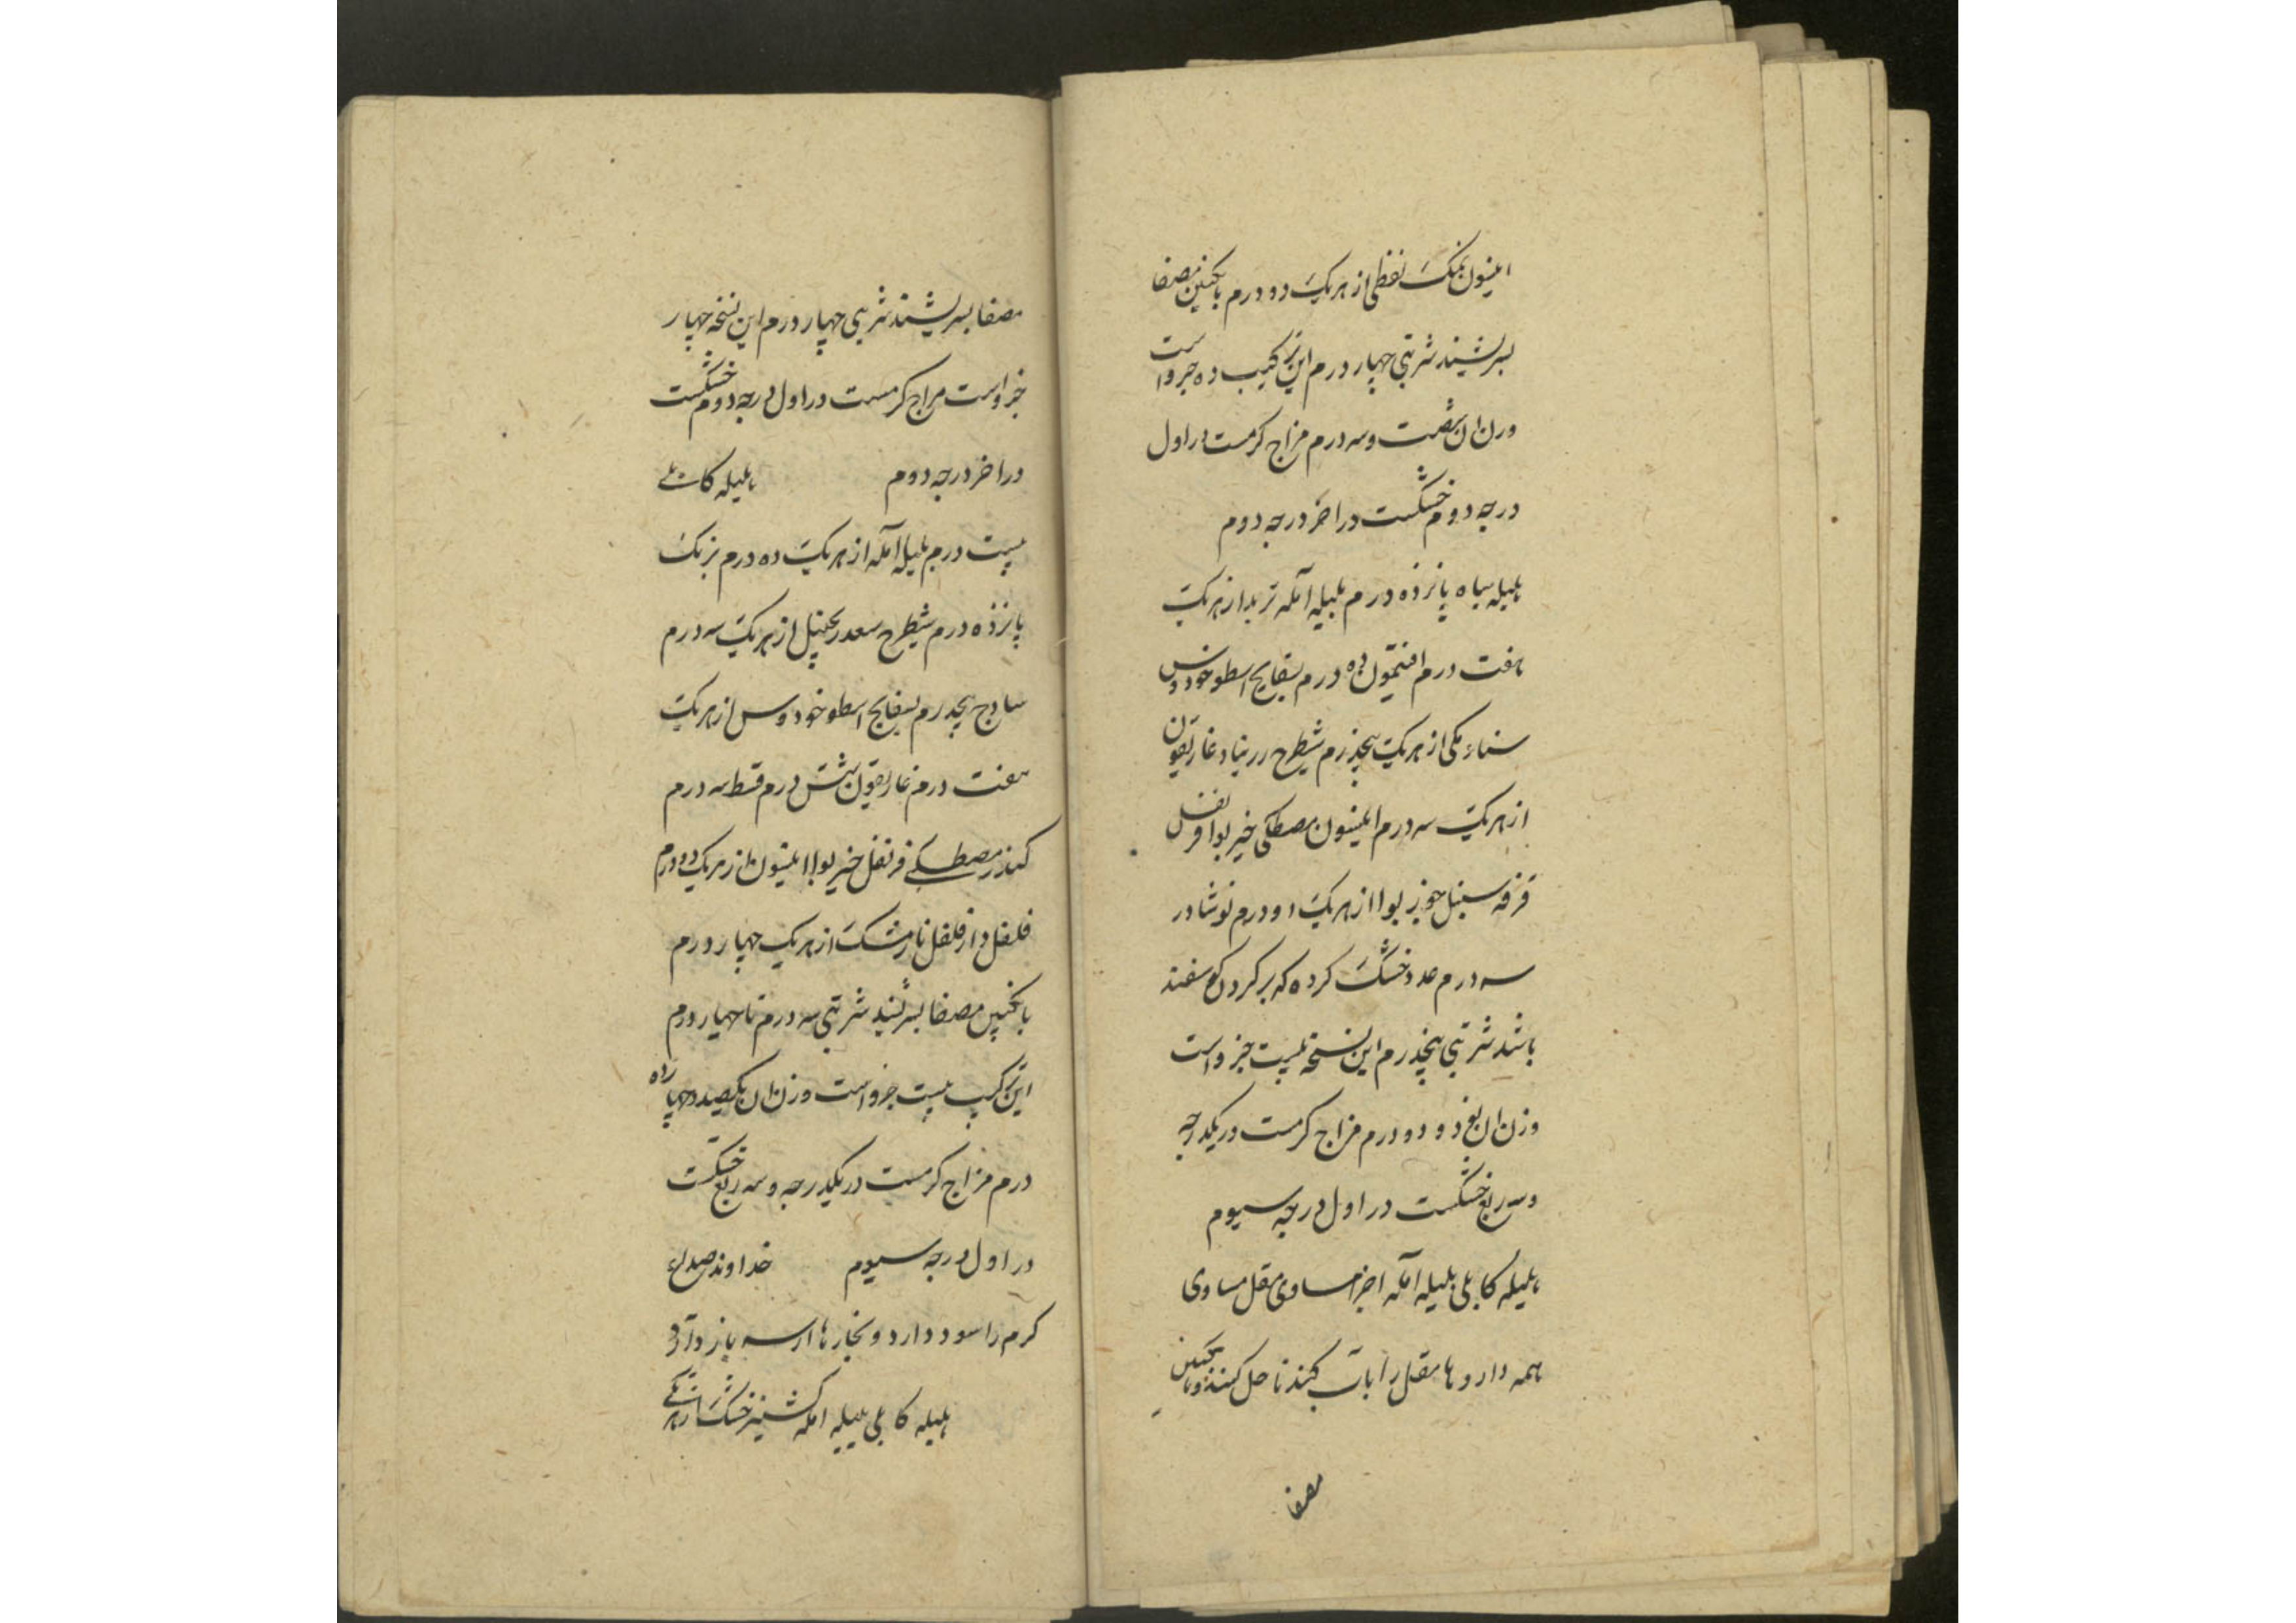 انیسون نمک نفطی از هریک دو درم بانگبین مصفا
بسرشند شربتی چهار درم این ترکیب ده جزو است
وزن ان شصت و سه درم مزاج کرمست در اول
درجه دوم خشکست در اخر درجه دوم
هلیله سیاه پانزده درم بلیله آمله تربد از هریک
هفت درم افتیمون ده درم بسفایج اسطوخودوس
سناء مکی از هریک پنجدرم شیطرج زرنباد غاریقون
از هریک سه درم انیسون مصطکی خیربوا قرنفل
قرفه سنبل جوزبوا از هریک دو درم نوشادر
سه درم غدد خشک کرده که بر کردن کوسفند
باشد شربتی پنجدرم این نسخه بیست جزو است
وزن ان نود و دو درم مزاج کرمست در یکدرجه
و سه ربع خشکست در اول درجه سیوم
هلیله کابلی بلیله امله اجزا مساوی مقل مساوی
همه داروها مقل را بآب کنند تا حل کنند و بانگبین
مصفا
مصفا بسریشند شربتی چهار درم این نسخه چهار
جزو است مزاج کرمست در اول درجه دوم خشکست
در اخر درجه دوم هلیله کابلی
بیست درم بلیله آمله از هریک ده درم برنک
پانزده درم شیطرج سعد زنجبیل از هریک سه درم
سادج پنجدرم بسفایج اسطوخودوس از هریک
هفت درم غاریقون شش درم قسط سه درم
کندر مصطکی قرنفل خیربوا انیسون از هریک دو درم
فلفل دارفلفل نارمشک از هریک چهار درم
بانگبین مصفا بسرشند شربتی سه درم تا چهار درم
این ترکیب بیست جزو است وزن ان یکصد و چهارده
درم مزاج کرمست در یکدرجه و سه ربع خشکست
در اول درجه سیوم خداوند صداع
کرم را سود دارد و بخارها از سر باز دارد
هلیله کابلی بلیله امله کشنیز خشک از هریکے